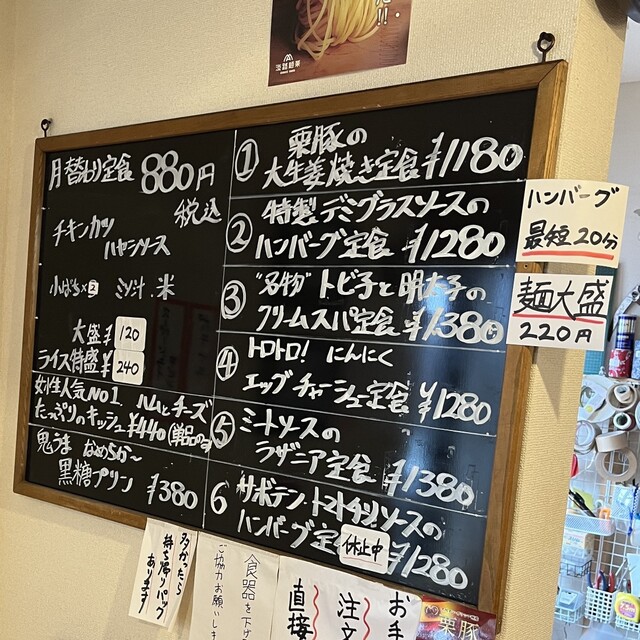 た!!
淡路麺業
月替わり定食 880円
税込
チキンカツ
ハヤシソース
小ばち×2 ミソ汁.米
大盛 ¥120
ライス特盛 ¥240
女性人気NO1 ハムとチーズ
たっぷりのキッシュ ¥440(単品のみ)
鬼うま なめらか〜
黒糖プリン ¥380
① 栗豚の
大生姜焼き定食 ¥1180
② 特製デミグラスソースの
ハンバーグ定食 ¥1280
③ "名物" トビ子と明太子の
クリームスパ定食 ¥1380
④ トロトロ! にんにく
エッグチャーシュー定食 ¥1280
⑤ ミートソースの
ラザニア定食 ¥1380
6 サボテン、トマトチリソースの
ハンバーグ定 休止中 ¥1280
ハンバーグ
最短20分
麺大盛
220円
多かったら
持ち帰りパック
あります
食器を下げ
ご協力お願いしま
お手
注文
直接
栗豚